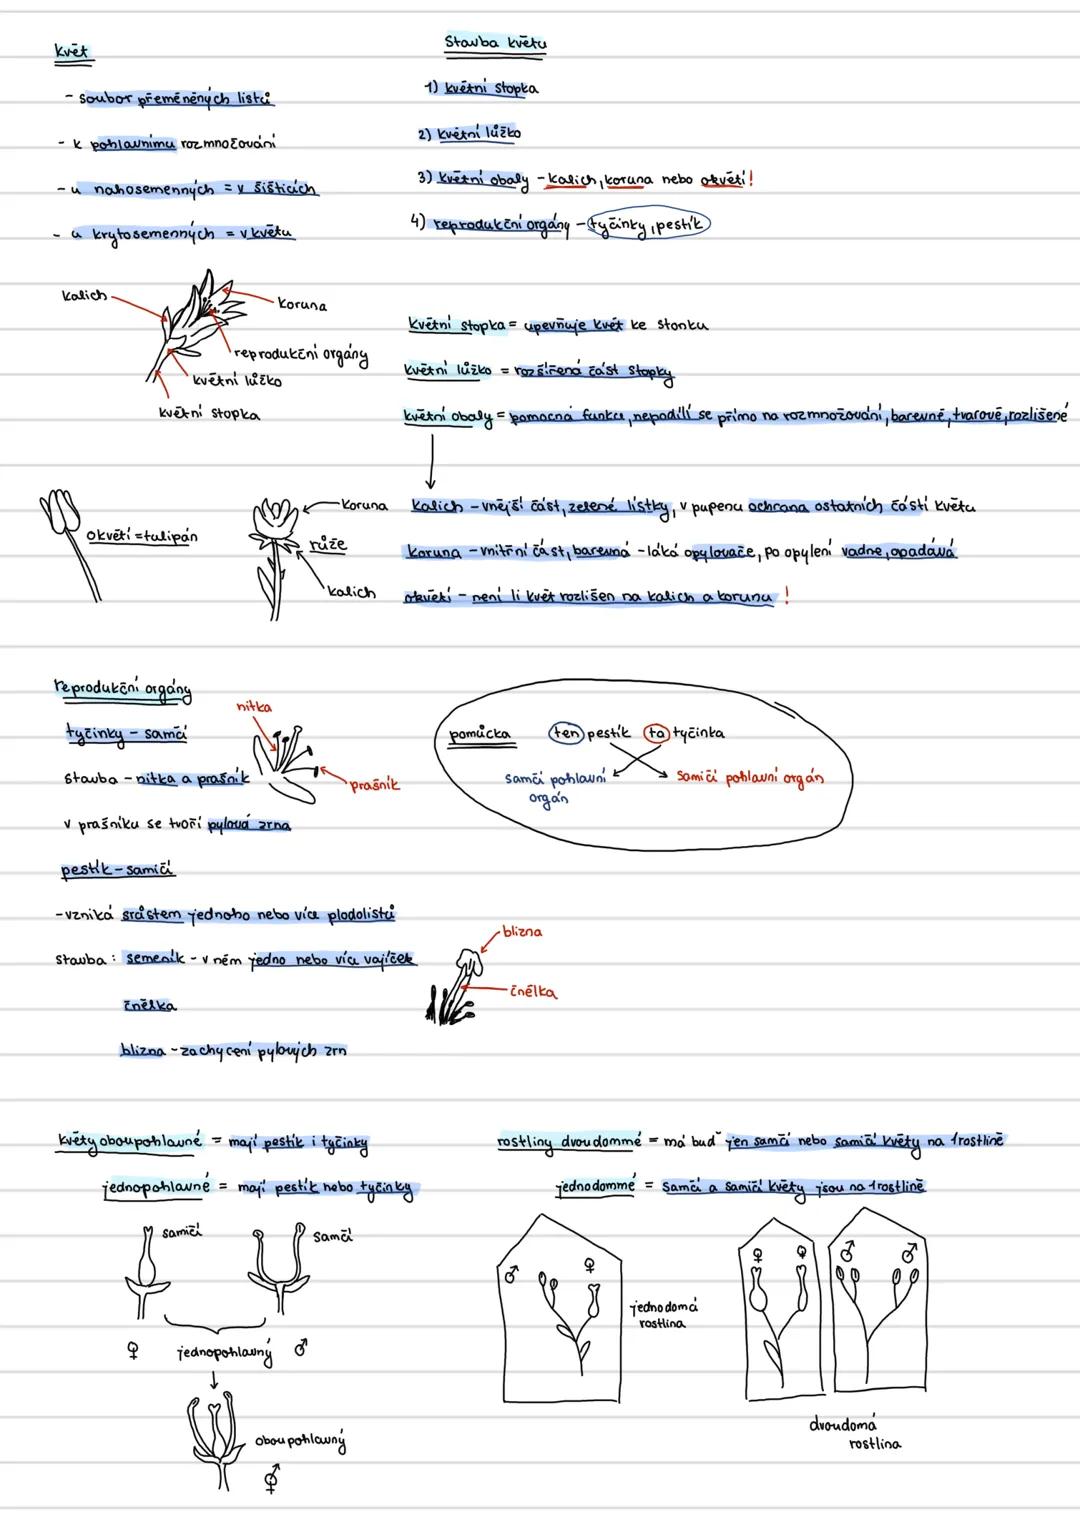 květ
- soubor přeměněných listů
- k pohlavnímu rozmnožování
- u nahosemenných = v šišticích
- u krytosemenných = v květu
Stavba květu
1) květní stopka
2) květní lůžko
3) květní obaly - kalich, koruna nebo okvětí!
4) reprodukční orgány - tyčinky, pestík
kalich
koruna
reprodukční orgány
květní lůžko
květní stopka
květní stopka = upevňuje květ ke stonku
květní lůžko = rozšířená část stopky
květní obaly = pomocná funkce, nepodílí se přímo na rozmnožování, barevně, tvarově, rozlišené
okvětí = tulipán
koruna
růže
kalich
kalich - vnější část, zelené lístky, v pupenu ochrana ostatních částí květu
koruna - vnitřní část, barevná - láká opylovače, po opylení vadne, opadává
okvětí - není li květ rozlišen na kalich a korunu !
reprodukční orgány
tyčinky - samčí
stavba - nitka a prašník
v prašníku se tvoří pylová zrna
nitka
prašník
pomůcka ten pestík ta tyčinka
samčí pohlavní orgán
samičí pohlavní orgán
pestík - samičí
- vzniká srůstem jednoho nebo více plodolistů
stavba : semeník - v něm jedno nebo více vajíček
čnělka
blizna - zachycení pylových zrn
blizna
čnělka
květy oboupohlavné = mají pestík i tyčinky
jednopohlavné = mají pestík nebo tyčinky
rostliny dvoudommé = má buď jen samčí nebo samičí květy na 1 rostlině
jednodommé = samčí a samičí květy jsou na 1 rostlině
samičí
samčí
♀ jednopohlavný ♂
oboupohlavný
⚥
♂ ♀
jednodomá
rostlina
♀ ♀ ♂ ♂
dvoudomá
rostlina